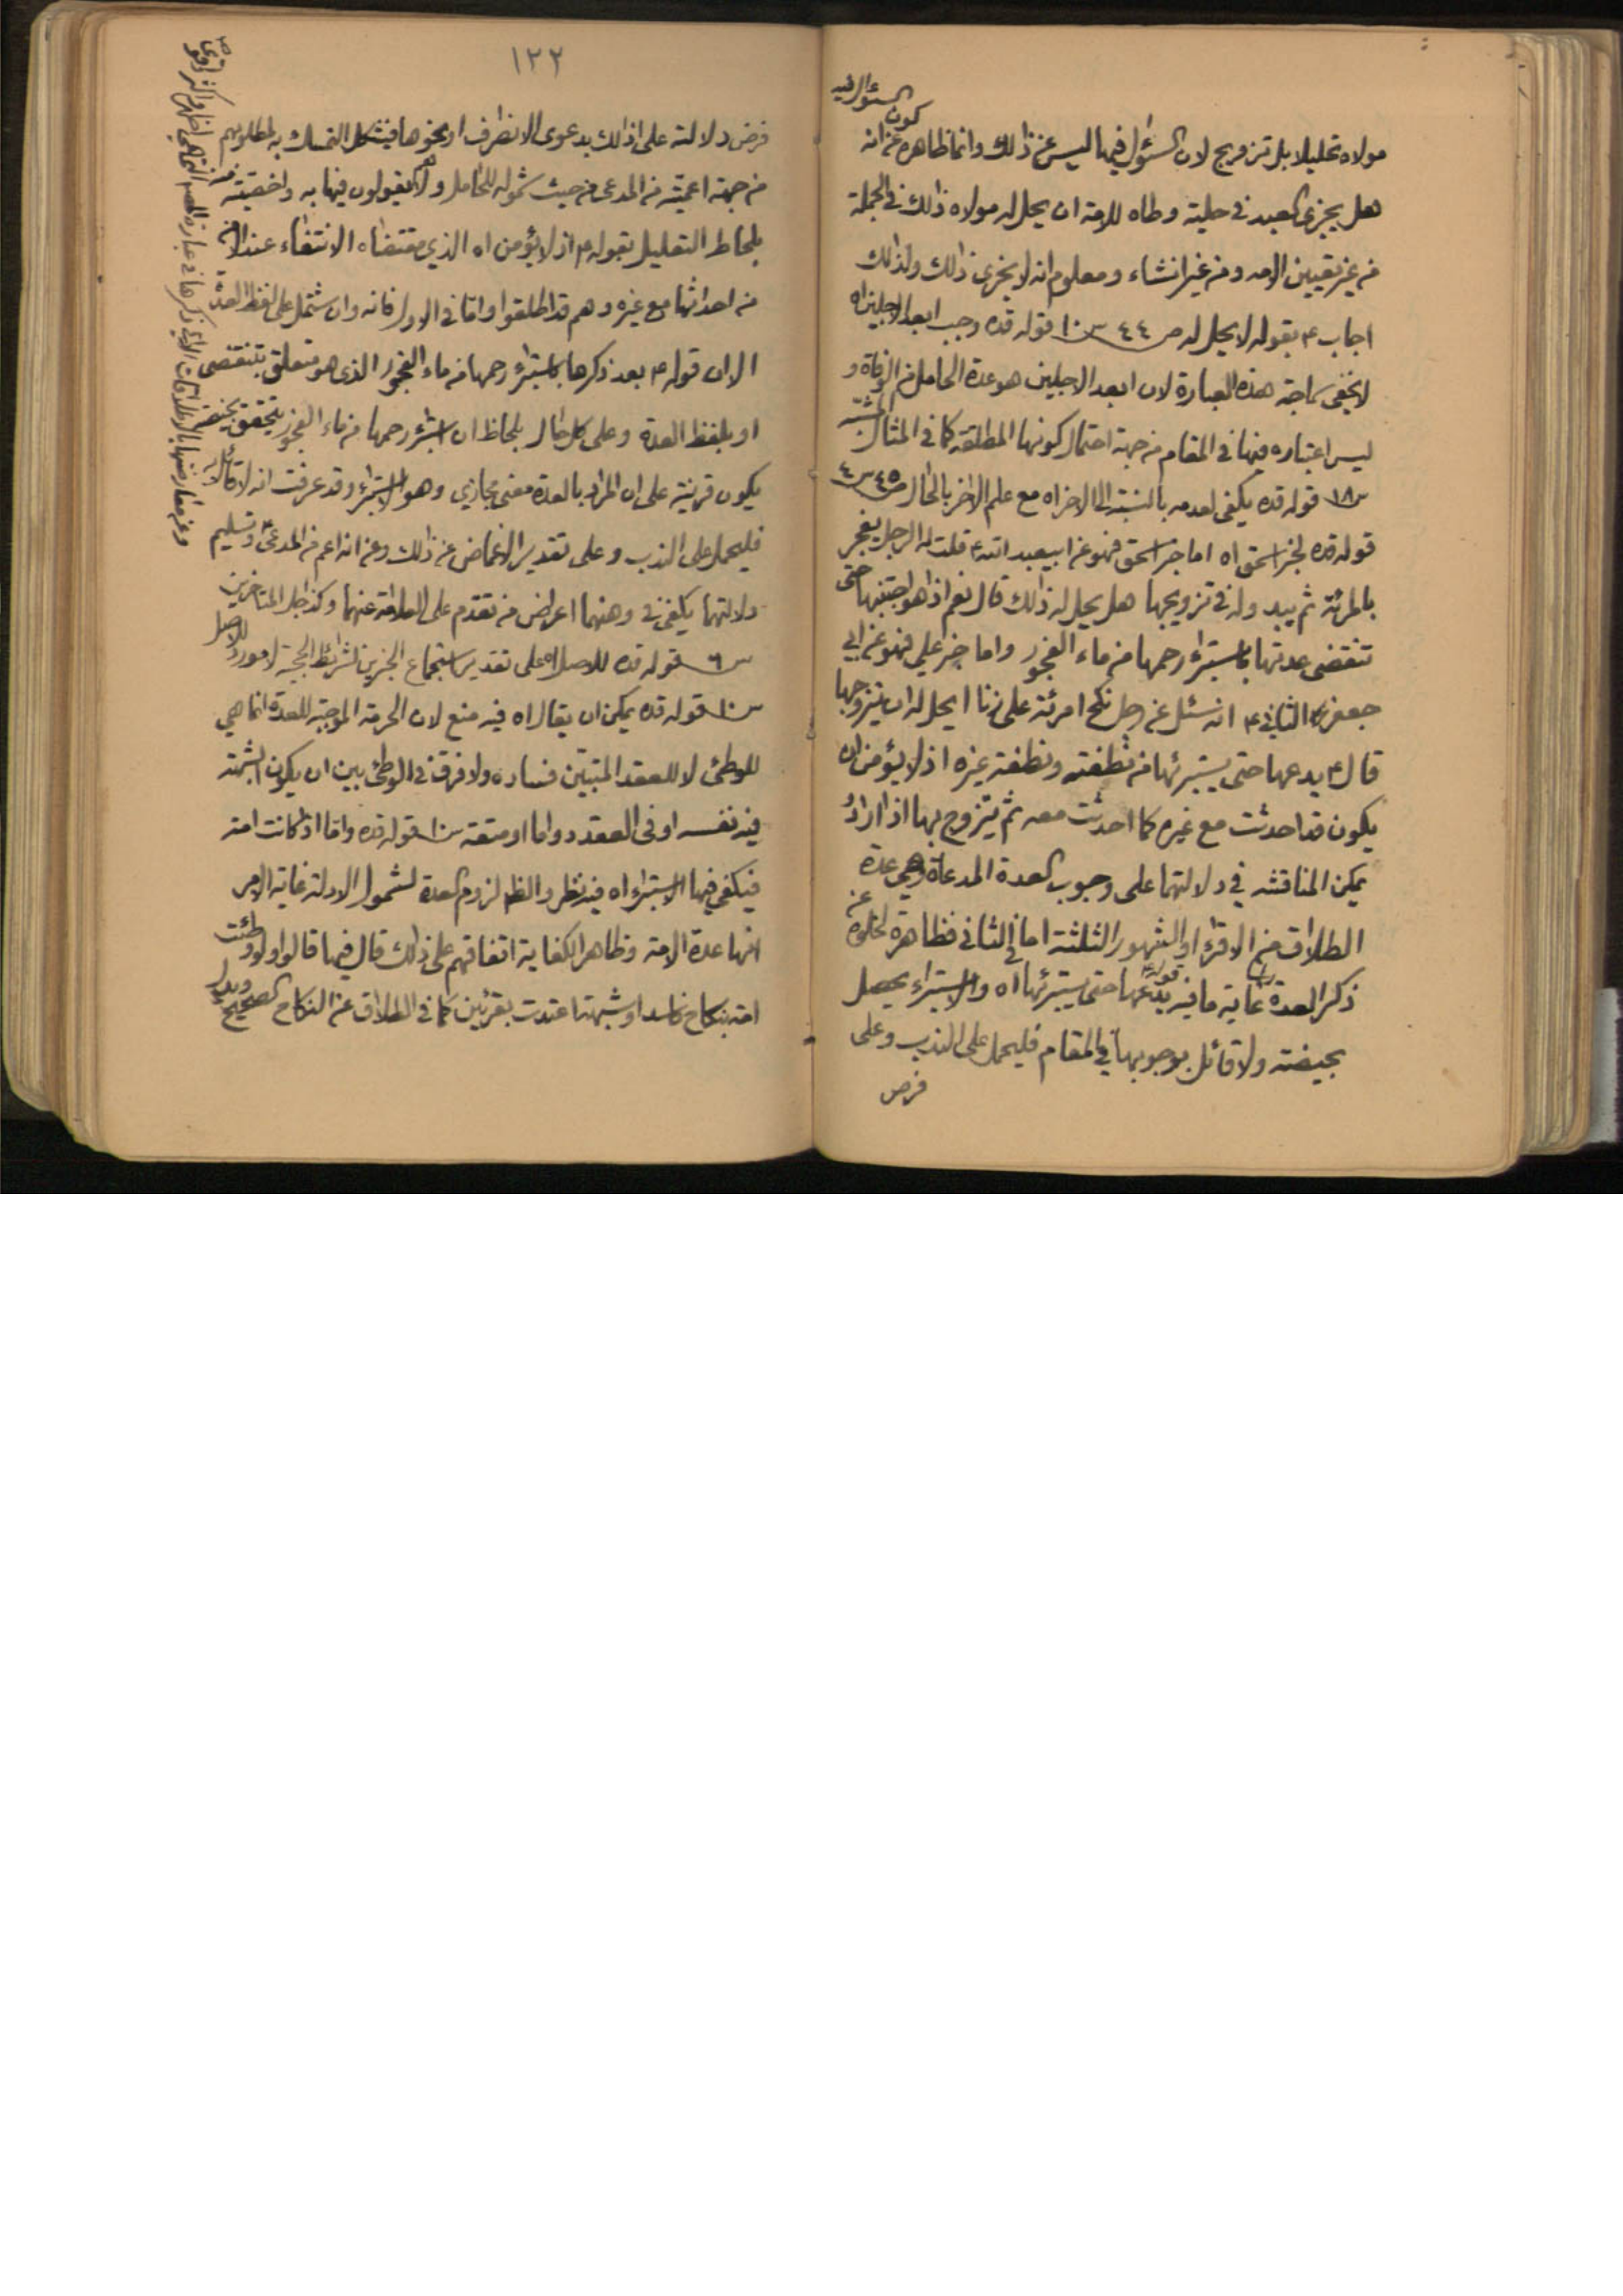 كون السؤال فيه
مولاه تحليلا بل تزويج لان السؤال فيها ليس عن ذالك وانما ظاهره عن انه
هل يجزى العبد في حلية وطاه للامة ان يحل له مولاه ذالك في الجملة
من غير تعيين الامه ومن غير انشاء ومعلوم انه لا يجزى ذالك ولذالك
اجاب ع بقوله لا يحل له ص ٤٤ س ١٠ قوله قده وجب ابعد الاجلين اه
لا يخفى سماجة هذه العبارة لان ابعد الاجلين هو عدة الحامل من الوفاة و
ليس اعتباره فيها في المقام من جهة احتمال كونها المطلقة كما في المثال
س ١٨ قوله قده يكفى لعدمه بالنسبة الى الاخر اه مع علم الاخر بالحال ص ٤٥ س ٤
قوله قده لخبر اسحق اه اما خبر اسحق فهو عن ابيعبد الله ع قلت له الرجل يفجر
بالمرئة ثم يبد وله في تزويجها هل يحل له ذالك قال نعم اذا هو اجتنبها حتى
تنقضى عدتها باستبراء رحمها من ماء الفجور واما خبر على فهو عن ابي
جعفر الثاني ع انه سئل عن رجل نكح امرئة على زنا ايحل له ان يتزوجها
قال ع يدعها حتى يستبرئها من نطفته ونطفة غيره اذ لا يؤمن ان
يكون قد احدثت مع غيره كما احدثت معه ثم يتزوج بها اذا اراد
يمكن المناقشه في دلالتهما على وجوب العدة المدعاة وهي عدة
الطلاق من الاقراء او الشهور الثلثة اما في الثاني فظاهرة لخلوه عن
ذكر العدة راسا غاية ما فيه قوله ع يدعها حتى يستبرئها اه والاستبراء يحصل
بحيضة ولا قائل بوجوبها في المقام فليحمل على الندب وعلى
فرض
١٢٢
فرض دلالته على ذالك بدعوى الانصراف او نحوها فيشكل التمسك به لمطلوبهم
من جهة اعميته من المدعى من حيث شموله للحامل ولا يقولون فيها به واخصيته منه
بلحاظ التعليل بقوله ع اذ لا يؤمن اه الذي مقتضاه الانتفاء عند الامن
من احداثها مع غيره وهم قد اطلقوا واما في الاول فانه وان شتمل على لفظ العدة
الا ان قوله ع بعد ذكرها باستبراء رحمها من ماء الفجور الذى هو متعلق بتنقضى
او بلفظ العدة وعلى كل حال بلحاظ ان استبراء رحمها من ماء الفجور يتحقق بحيضة
يكون قرينة على ان المراد بالعدة معنى مجازي وهو الاستبراء وقد عرفت انه لا قائل به
فليحمل على الندب وعلى تقدير الاغماض عن ذالك وعن انه اعم من المدعى وتسليم
دلالتهما يكفى في وهنهما اعراض من تقدم على العلامة عنهما وكذا جل المتاخرين
س ٦ قوله قده للاصل اه على تقدير استجماع الخبرين لشرائط الحجية لا مورد للاصل
س ١٠ قوله قده يمكن ان يقال اه فيه منع لان الحرمة الموجبة للعدة انما هي
للوطئ لا للعقد المتبين فساده ولا فرق في الوطئ بين ان يكون الشبهة
فيه نفسه او في العقد دواما او متعة س ١٠ قوله قده واما اذا كانت امة
فيكفي فيها الاستبراء اه فيه نظر والظ لزوم العدة لشمول الادلة غاية الامر
انها عدة الامة وظاهر الكفاية اتفاقهم على ذالك قال فيها قالوا ولو وطئت
امة بنكاح فاسد او شبهة اعتدت بقرئين كما في الطلاق عن النكاح الصحيح ويدل